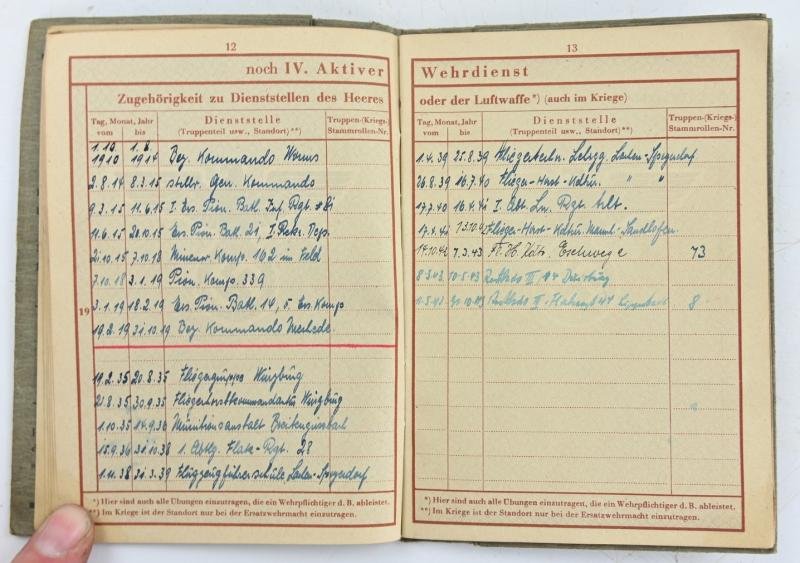 12
noch IV. Aktiver
Zugehörigkeit zu Dienststellen des Heeres
Tag, Monat, Jahr
vom bis
Dienststelle
(Truppenteil usw., Standort)**)
Truppen-(Kriegs-)
Stammrollen-Nr.
19
1.10. 1910 1.8. 1914 Bez. Kommando Worms
2.8.14 8.3.15 stellv. Gen. Kommando
9.3.15 11.6.15 I. Ers. Pion. Batl. Inf. Rgt.
11.6.15 20.10.15 Ers. Pion. Batl. 21, I. Rekr. Dep.
21.10.15 7.10.18 Minenw. Komp. 102 im Feld
7.10.18 3.1.19 Pion. Komp. 339
3.1.19 18.2.19 Ers. Pion. Batl. 14, 5. Ers. Komp
19.2.19 31.10.19 Bez. Kommando
19.2.35 20.8.35 Fliegergruppe Würzburg
21.8.35 30.9.35 Fliegerhorstkommandantur Würzburg
1.10.35 14.9.36 Munitionsanstalt Breitengüssbach
15.9.36 31.10.38 1. Abtlg. Flak-Rgt. 28
1.11.38 31.3.39 Flugzeugführerschule
*) Hier sind auch alle Übungen einzutragen, die ein Wehrpflichtiger d. B. ableistet.
**) Im Kriege ist der Standort nur bei der Ersatzwehrmacht einzutragen.
13
Wehrdienst
oder der Luftwaffe*) (auch im Kriege)
Tag, Monat, Jahr
vom bis
Dienststelle
(Truppenteil usw., Standort)**)
Truppen-(Kriegs-)
Stammrollen-Nr.
1.4.39 25.8.39
26.8.39 16.7.40 Flieger-Horst-Kdtur. " "
17.7.40 16.4.41 I. Abt. Ln. Rgt.
17.4.41 13.10.42 Flieger-Horst-Kdtur. Mannh.-Sandhofen
14.10.42 7.3.43 Fl. H. Kdtr. Eschwege 73
8.3.43 10.5.43
11.5.43 8
*) Hier sind auch alle Übungen einzutragen, die ein Wehrpflichtiger d. B. ableistet.
**) Im Kriege ist der Standort nur bei der Ersatzwehrmacht einzutragen.